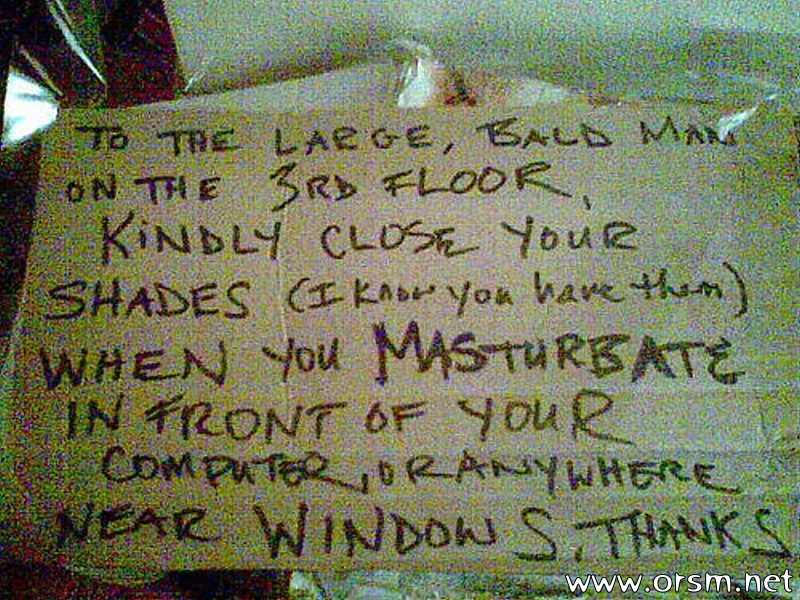 TO THE LARGE, BALD MAN
ON THE 3RD FLOOR,
KINDLY CLOSE YOUR
SHADES (I KNOW you have them)
WHEN YOU MASTURBATE
IN FRONT OF YOUR
COMPUTER, OR ANYWHERE
NEAR WINDOWS. THANKS
www.orsm.net